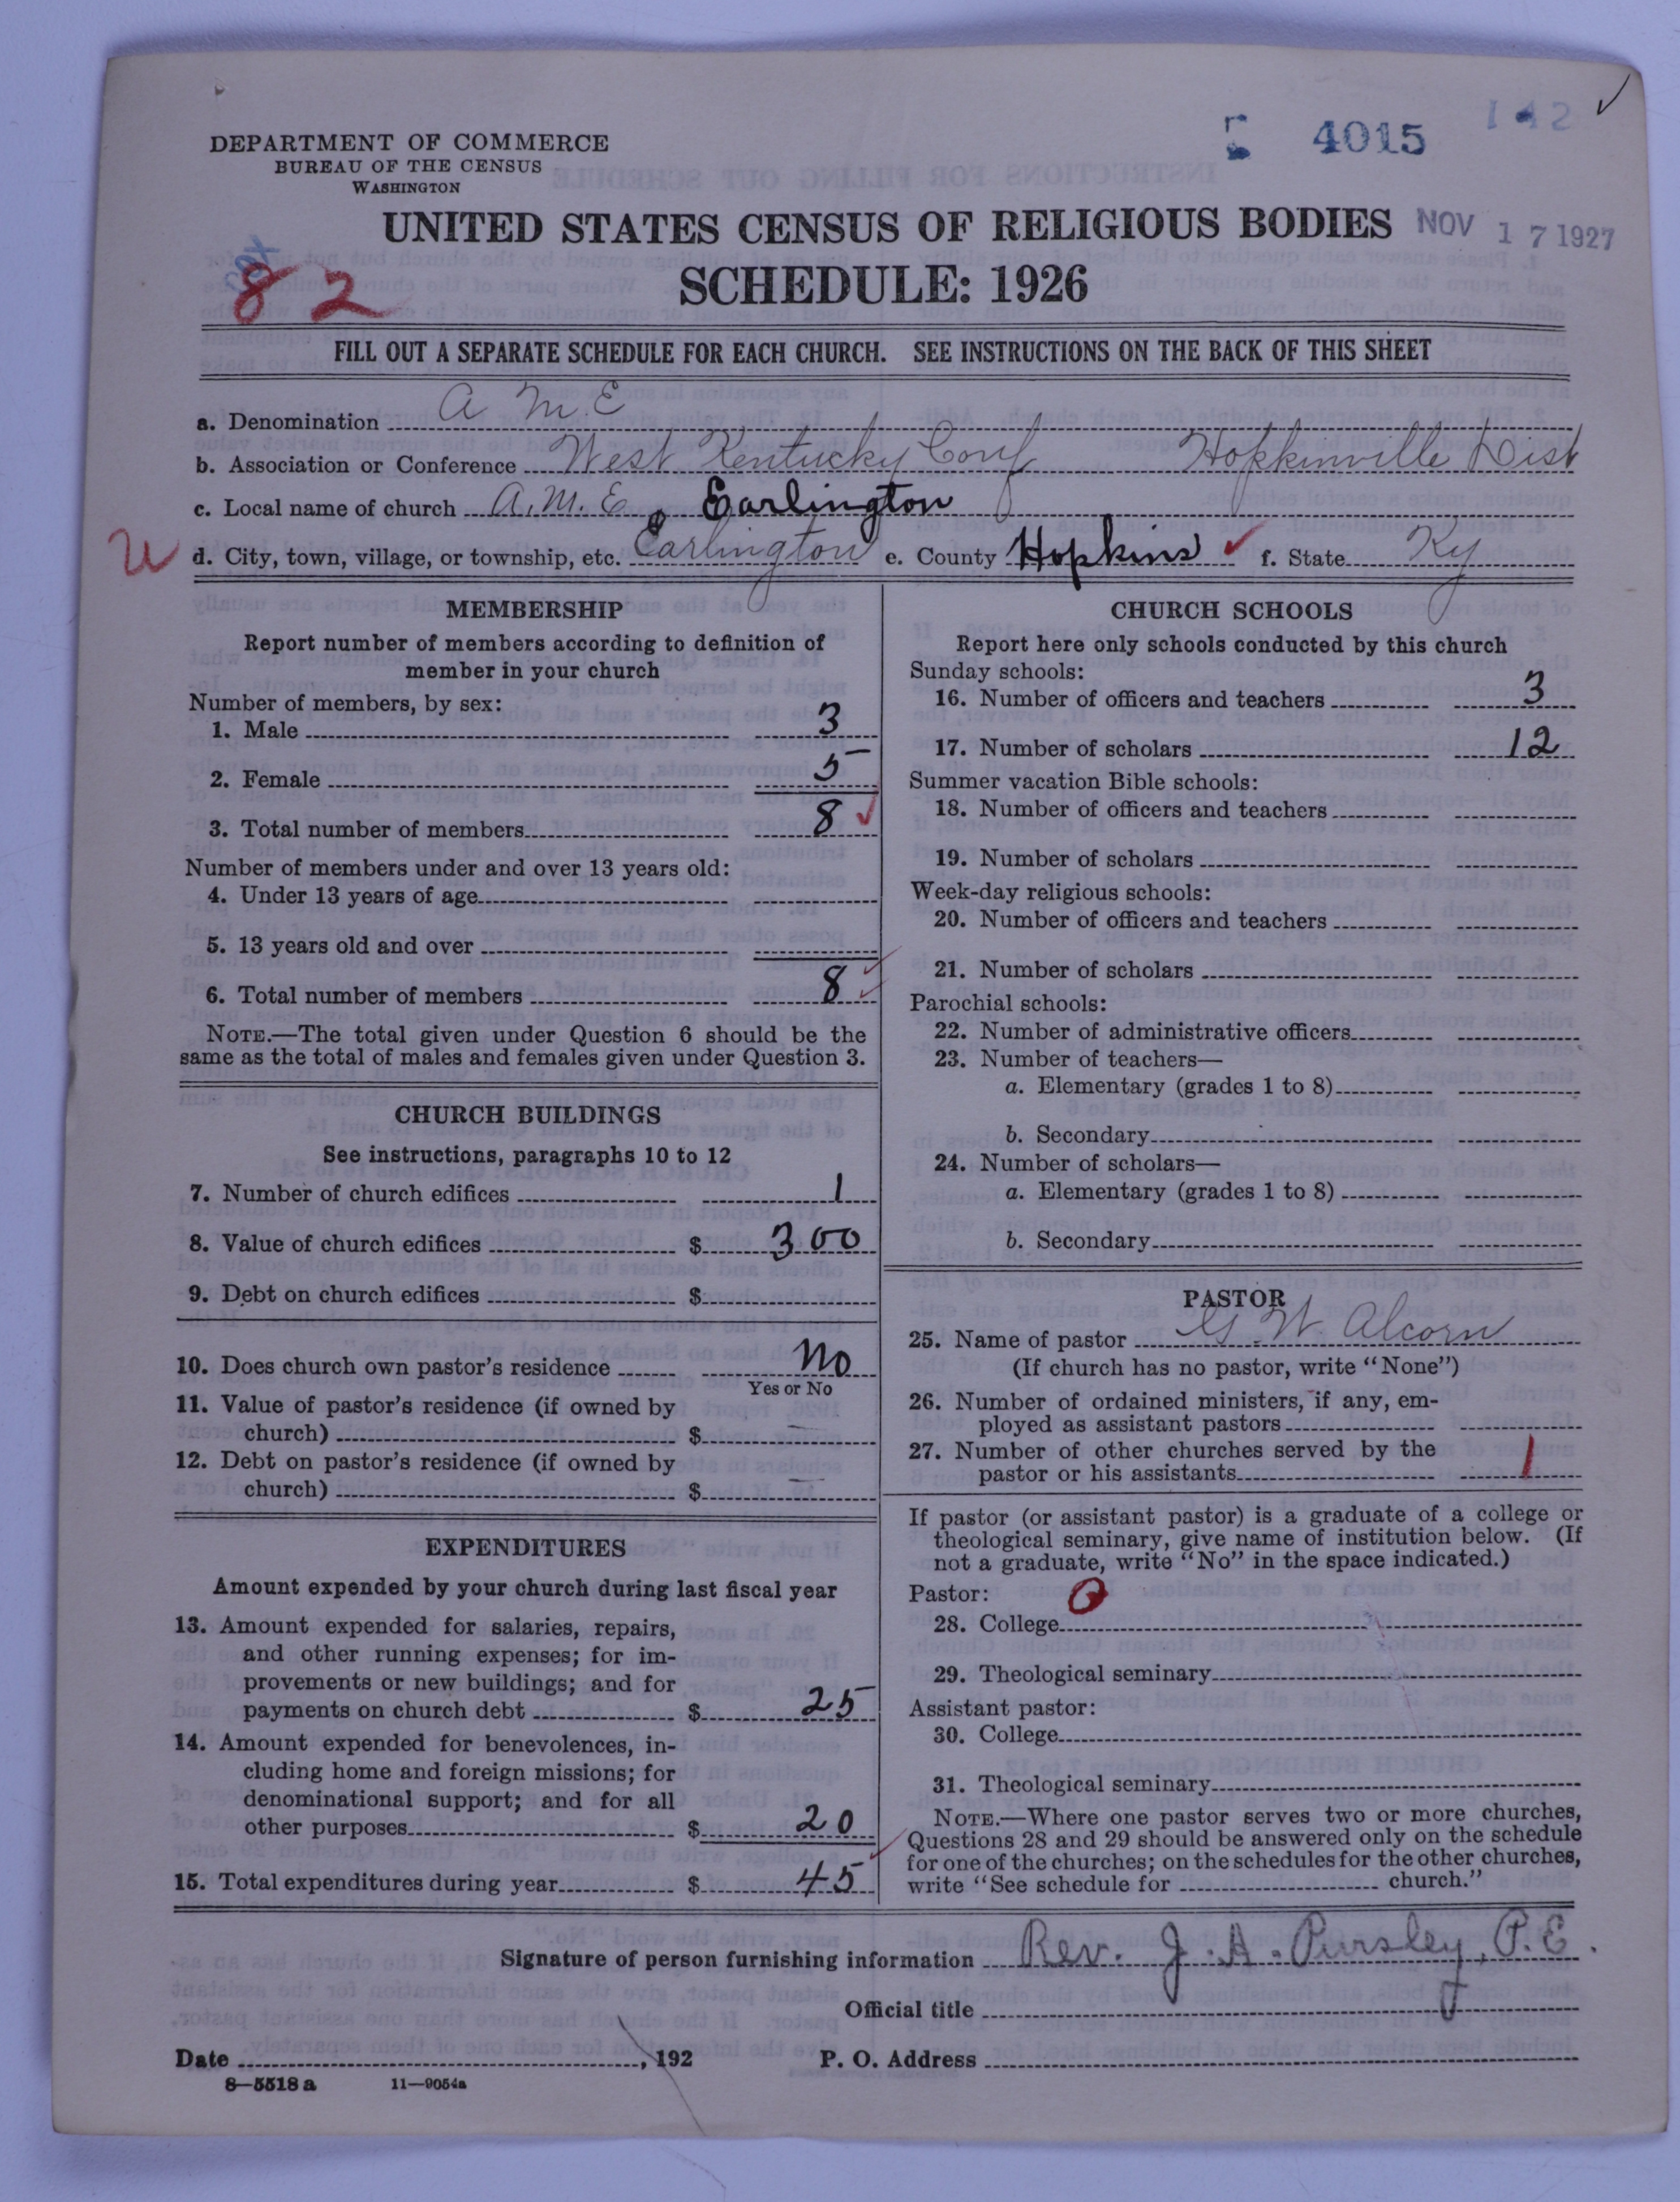 142 ✓
4015
DEPARTMENT OF COMMERCE
BUREAU OF THE CENSUS
WASHINGTON
UNITED STATES CENSUS OF RELIGIOUS BODIES
NOV 17 1927
82
SCHEDULE: 1926
FILL OUT A SEPARATE SCHEDULE FOR EACH CHURCH. SEE INSTRUCTIONS ON THE BACK OF THIS SHEET
a. Denomination A M. E
b. Association or Conference West Kentucky Conf Hopkinville Dist
c. Local name of church A. M. E. Earlington
d. City, town, village, or township, etc. Earlington e. County Hopkins ✓ f. State Ky
MEMBERSHIP
Report number of members according to definition of
member in your church
Number of members, by sex:
1. Male 3
2. Female 5
3. Total number of members 8 ✓
Number of members under and over 13 years old:
4. Under 13 years of age
5. 13 years old and over
6. Total number of members 8 ✓
NOTE.—The total given under Question 6 should be the
same as the total of males and females given under Question 3.
CHURCH BUILDINGS
See instructions, paragraphs 10 to 12
7. Number of church edifices 1
8. Value of church edifices $ 300
9. Debt on church edifices $
10. Does church own pastor's residence No
Yes or No
11. Value of pastor's residence (if owned by
church) $ —
12. Debt on pastor's residence (if owned by
church) $ —
EXPENDITURES
Amount expended by your church during last fiscal year
13. Amount expended for salaries, repairs,
and other running expenses; for im-
provements or new buildings; and for
payments on church debt $ 25
14. Amount expended for benevolences, in-
cluding home and foreign missions; for
denominational support; and for all
other purposes $ 20
15. Total expenditures during year $ 45 ✓
CHURCH SCHOOLS
Report here only schools conducted by this church
Sunday schools:
16. Number of officers and teachers 3
17. Number of scholars 12
Summer vacation Bible schools:
18. Number of officers and teachers
19. Number of scholars
Week-day religious schools:
20. Number of officers and teachers
21. Number of scholars
Parochial schools:
22. Number of administrative officers
23. Number of teachers—
a. Elementary (grades 1 to 8)
b. Secondary
24. Number of scholars—
a. Elementary (grades 1 to 8)
b. Secondary
PASTOR
25. Name of pastor G W Alcorn
(If church has no pastor, write "None")
26. Number of ordained ministers, if any, em-
ployed as assistant pastors
27. Number of other churches served by the
pastor or his assistants 1
If pastor (or assistant pastor) is a graduate of a college or
theological seminary, give name of institution below. (If
not a graduate, write "No" in the space indicated.)
Pastor: O
28. College
29. Theological seminary
Assistant pastor:
30. College
31. Theological seminary
NOTE.—Where one pastor serves two or more churches,
Questions 28 and 29 should be answered only on the schedule
for one of the churches; on the schedules for the other churches,
write "See schedule for church."
Signature of person furnishing information Rev. J. A. Pursley, P. E.
Official title
Date , 192 P. O. Address
8—5518 a 11—9054a